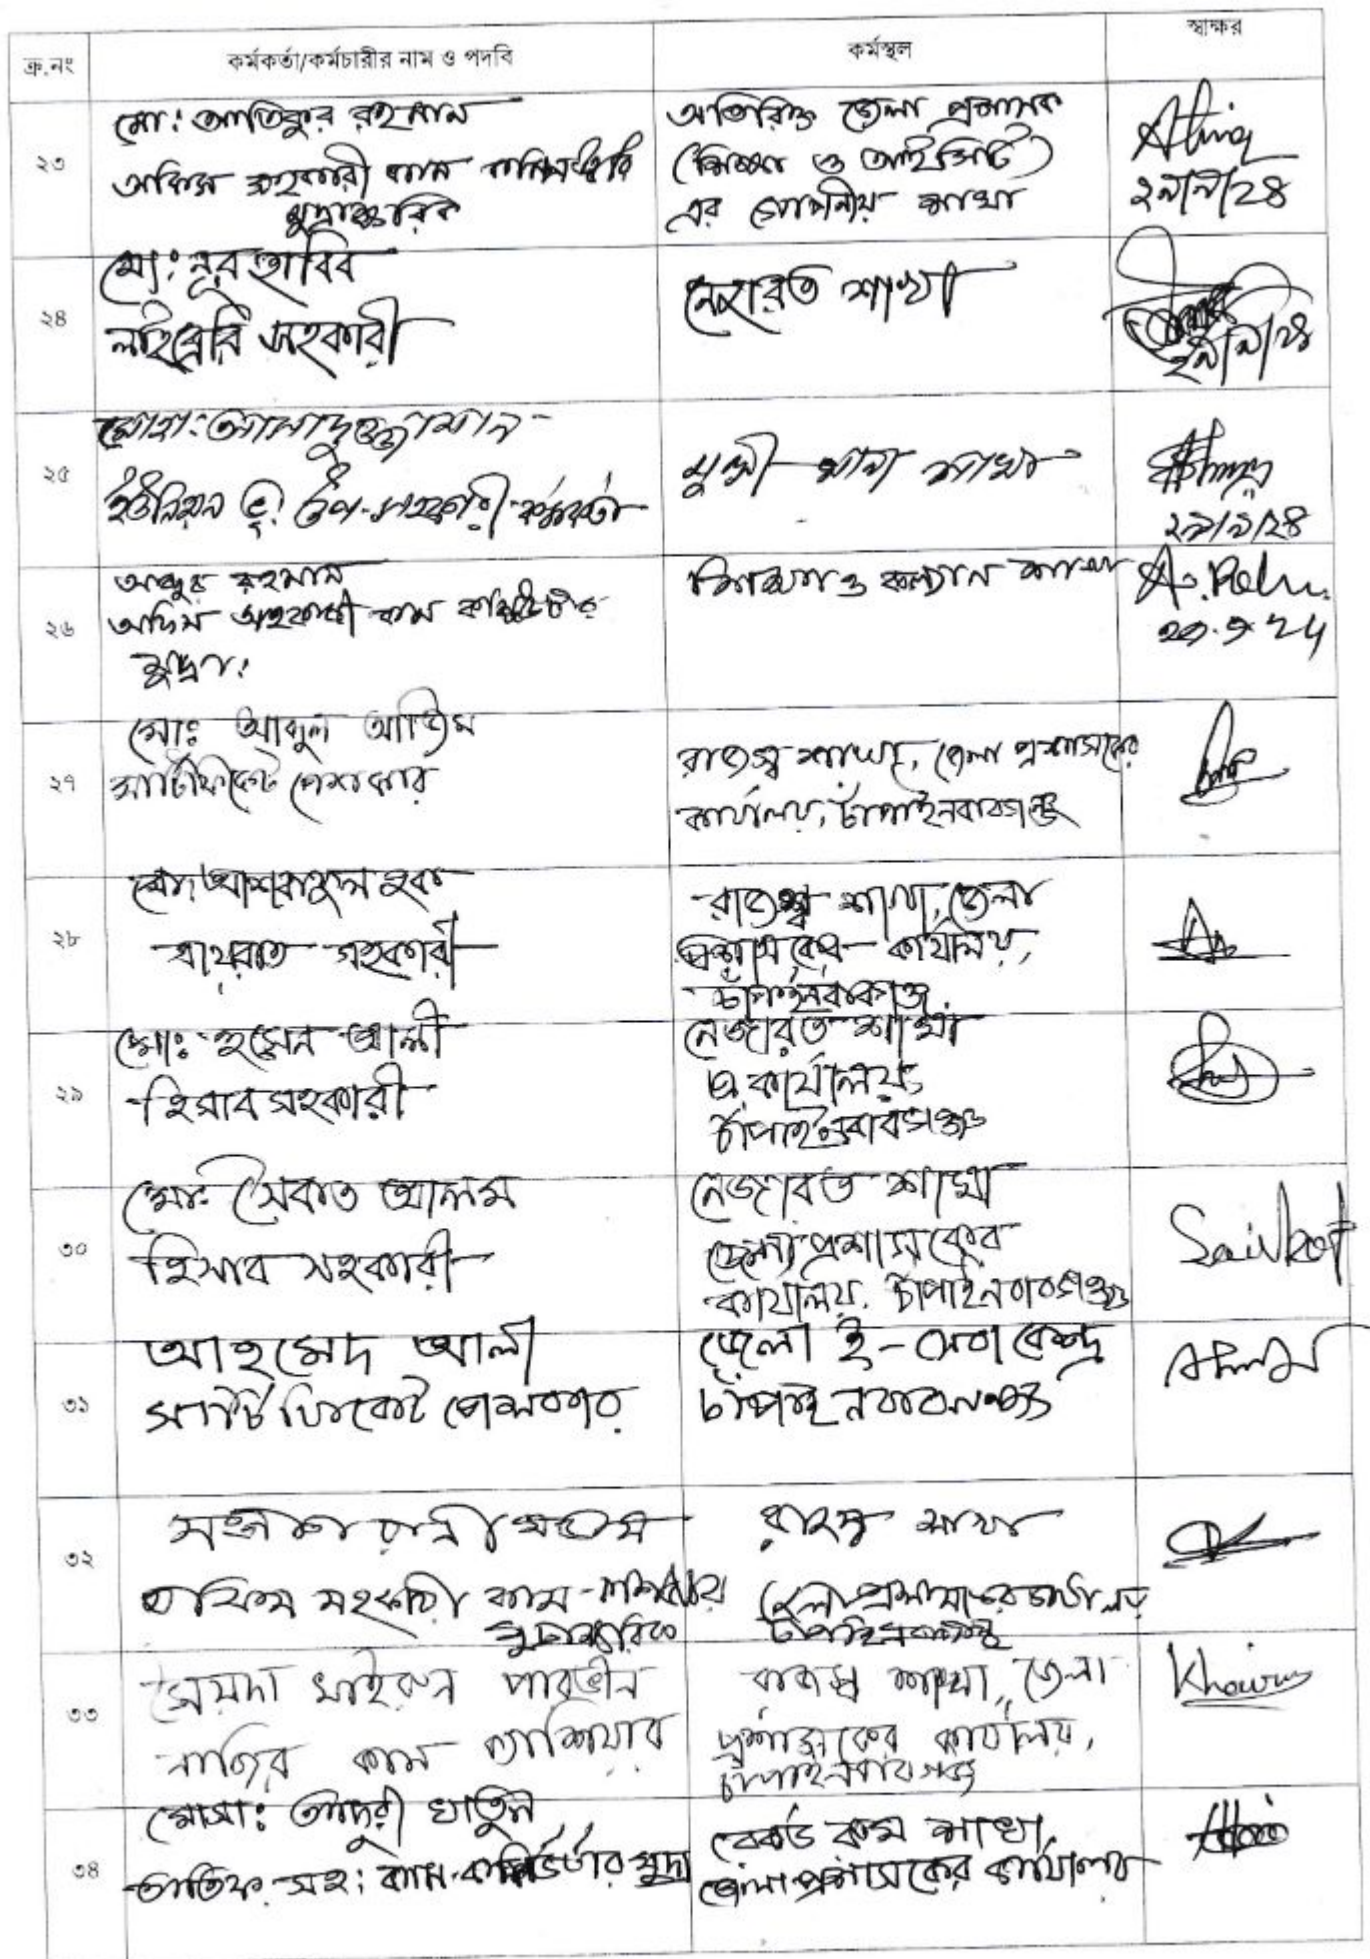 ক্র.নং কর্মকর্তা/কর্মচারীর নাম ও পদবি কর্মস্থল স্বাক্ষর
২৩
মো: আতিকুর রহমান
অফিস সহকারী কাম কম্পিউটার
মুদ্রাক্ষরিক
অতিরিক্ত জেলা প্রশাসক
(শিক্ষা ও আইসিটি)
এর গোপনীয় শাখা
২৯/৯/২৪
২৪
মো: নূর হাবিব
লাইব্রেরি সহকারী
নেজারত শাখা
২৯/৯/২৪
২৫
মোহা: আসাদুজ্জামান
ইউনিয়ন ভূ: উপ-সহকারী কর্মকর্তা
মুন্সী খানা শাখা
২৯/৯/২৪
২৬
আব্দুর রহমান
অফিস সহকারী কাম কম্পিউটার
মুদ্রা:
শিক্ষা ও কল্যান শাখা
২৯.৯.24
২৭
মোঃ আব্দুল আজিম
সার্টিফিকেট পেশকার
রাজস্ব শাখা, জেলা প্রশাসকের
কার্যালয়, চাঁপাইনবাবগঞ্জ
২৮
মোঃ আশরাফুল হক
সহকারী
রাজস্ব শাখা, জেলা
প্রশাসকের কার্যালয়,
চাঁপাইনবাবগঞ্জ
২৯
মোঃ হুসেন আলী
হিসাব সহকারী
নেজারত শাখা
কার্যালয়,
চাঁপাইনবাবগঞ্জ
৩০
মোঃ সৈকত আলম
হিসাব সহকারী
নেজারত শাখা
জেলা প্রশাসকের
কার্যালয়, চাঁপাইনবাবগঞ্জ
Saikot
৩১
আহমেদ আলী
সার্টিফিকেট পেশকার
জেলা ই-সেবা কেন্দ্র
চাঁপাইনবাবগঞ্জ
৩২
অফিস সহকারী কাম-কম্পিউটার
মুদ্রাক্ষরিক
রাজস্ব শাখা
জেলা প্রশাসকের কার্যালয়
চাঁপাইনবাবগঞ্জ
৩৩
সৈয়দা খাইরুন পারভীন
নাজির কাম ক্যাশিয়ার
রাজস্ব শাখা, জেলা
প্রশাসকের কার্যালয়,
চাঁপাইনবাবগঞ্জ
Khairun
৩৪
মোসা: আদুরী খাতুন
অফিস সহ: কাম-কম্পিউটার মুদ্রা
রেকর্ড রুম শাখা,
জেলা প্রশাসকের কার্যালয়